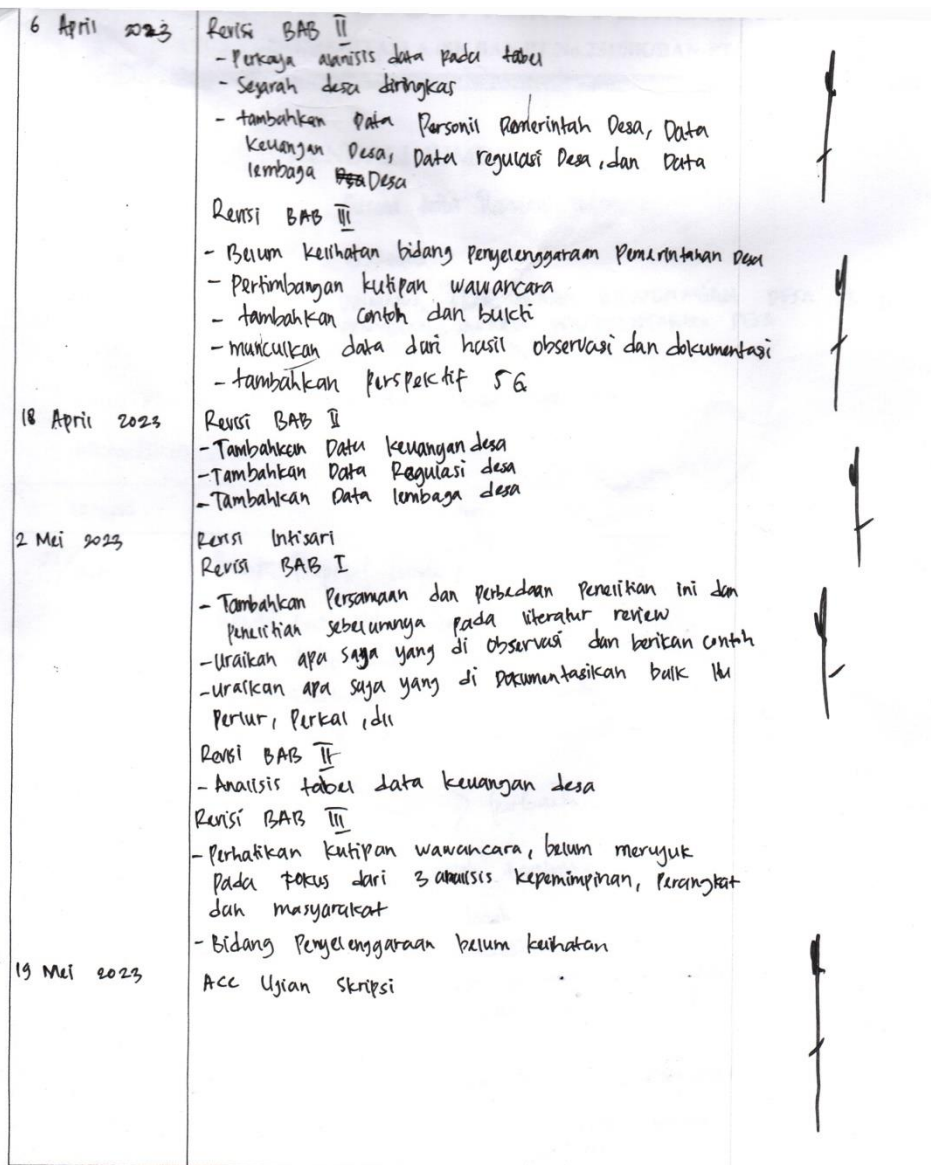 6 April 2023 Revisi BAB II
- Perkaya analisis data pada tabel
- Sejarah desa diringkas
- tambahkan Data Personil Pemerintah Desa, Data
Keuangan Desa, Data regulasi Desa, dan Data
lembaga Desa
Revisi BAB III
- Belum kelihatan bidang penyelenggaraan Pemerintahan Desa
- Pertimbangan kutipan wawancara
- tambahkan contoh dan bukti
- munculkan data dari hasil observasi dan dokumentasi
- tambahkan Perspektif 5G
18 April 2023 Revisi BAB II
- Tambahkan Data keuangan desa
- Tambahkan Data Regulasi desa
- Tambahkan Data lembaga desa
2 Mei 2023 Revisi Intisari
Revisi BAB I
- Tambahkan Persamaan dan perbedaan Penelitian ini dan
penelitian sebelumnya pada literatur review
- Uraikan apa saja yang di observasi dan berikan contoh
- uraikan apa saja yang di Dokumentasikan baik itu
Perlur, Perkal, dll
Revisi BAB II
- Analisis tabel data keuangan desa
Revisi BAB III
- Perhatikan kutipan wawancara, belum merujuk
pada fokus dari 3 analisis kepemimpinan, Perangkat
dan masyarakat
- Bidang Penyelenggaraan belum kelihatan
19 Mei 2023 Acc Ujian Skripsi